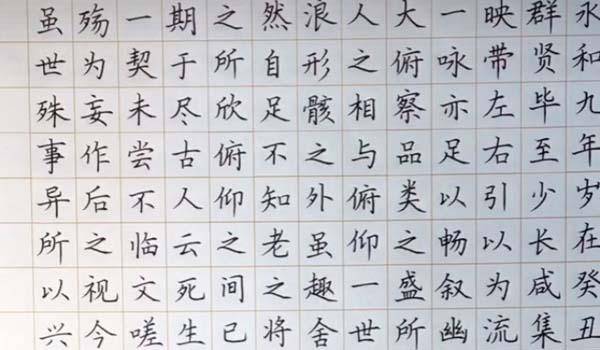 永和九年岁在癸丑
群贤毕至少长咸集
映带左右引以为流
一咏亦足以畅叙幽
大俯察品类之盛所
人之相与俯仰一世
浪形骸之外虽趣舍
然自足不知老之将
之所欣俯仰之间已
期于尽古人云死生
一契未尝不临文嗟
殇为妄作后之视今
虽世殊事异所以兴